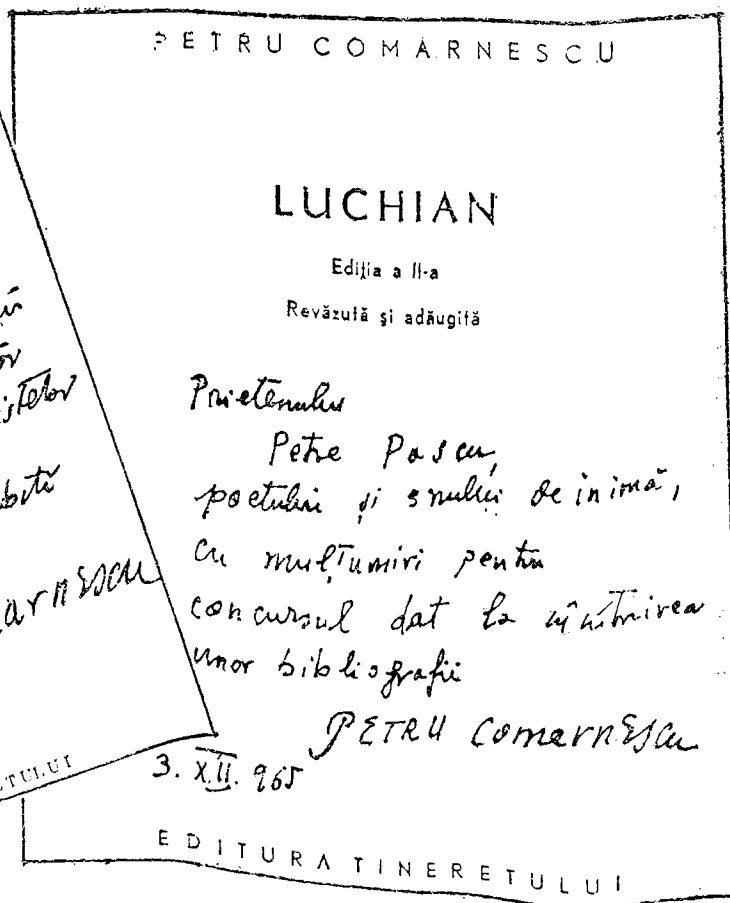 PETRU COMARNESCU
LUCHIAN
Ediția a II-a
Revăzută și adăugită
Prietenului
Petre Pascu,
poetului și omului de inimă,
cu mulțumiri pentru
concursul dat la
unor bibliografii
PETRU COMARNESCU
3. XII. 965
EDITURA TINERETULUI